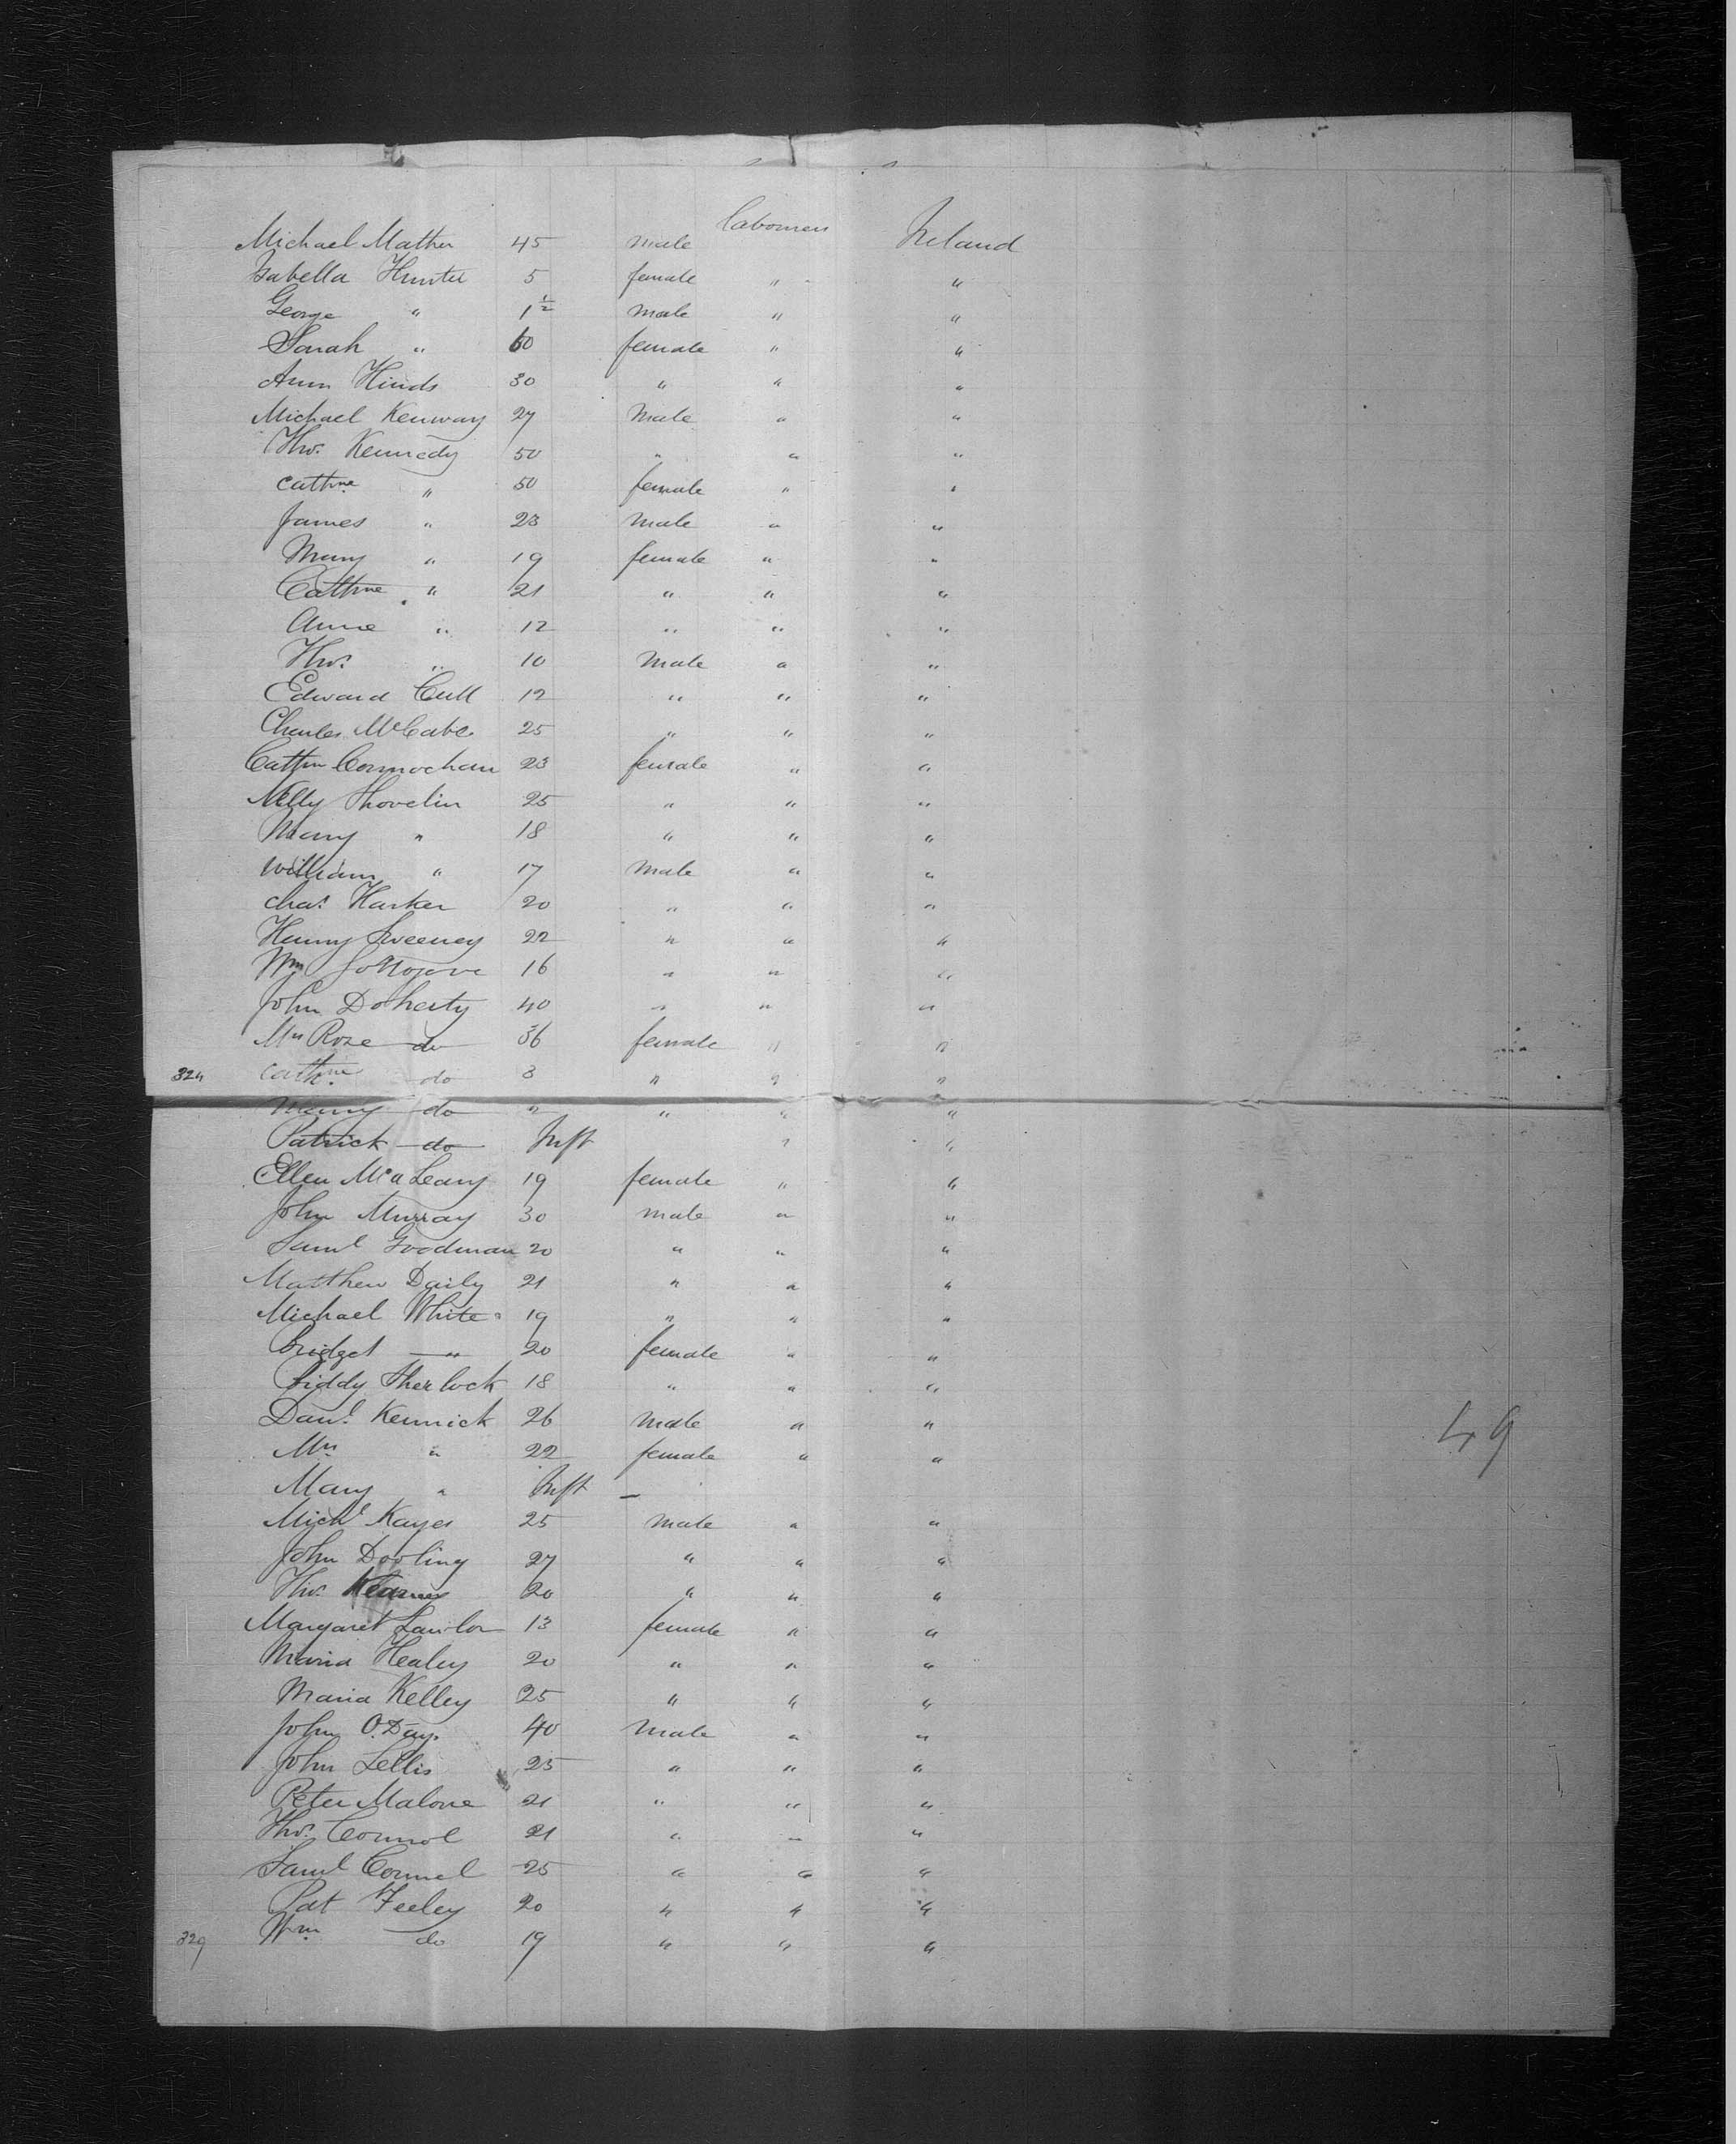 Michael Mather 45 male Labourers Ireland
Isabella Hunter 5 female " "
George " 1½ male " "
Sarah " 60 female " "
Ann Hinds 30 " " "
Michael Kenway 27 Male " "
Thos. Kennedy 50 " " "
Cathne " 50 female " "
James " 23 Male " "
Mary " 19 female " "
Cathne " 21 " " "
Anne " 12 " " "
Thos. " 10 Male " "
Edward Cull 12 " " "
Charles McCabe 25 " " "
Cathn Connochan 23 female " "
Nelly Shovelin 25 " " "
Mary " 18 " " "
William " 17 Male " "
Chas. Harker 20 " " "
Henry Sweeney 22 " " "
Wm 16 " " "
John Doherty 40 " " "
Mrs Rose do 36 female " "
324 Cathne do 3 " " "
Mary do " " " "
Patrick do Inft " "
Ellen McaLeary 19 female " "
John Murray 30 male " "
Saml Goodman 20 " " "
Matthew Daily 21 " " "
Michael White 19 " " "
Bridget " 20 female " "
Biddy Sherlock 18 " " "
Danl. Kennick 26 Male " "
49
Mrs " 22 female " "
Mary " Inft —
Michl Kayes 25 male " "
John Dooling 27 " " "
Thos. Kearney 20 " " "
Margaret Lawlor 13 female " "
Maria Healey 20 " " "
Maria Kelley 25 " " "
John O.Day 40 Male " "
John Lellis 25 " " "
Peter Malone 21 " " "
Thos. Connol 21 " " "
Saml Connel 25 " " "
Pat Feeley 20 " " "
329 Wm do 19 " " "